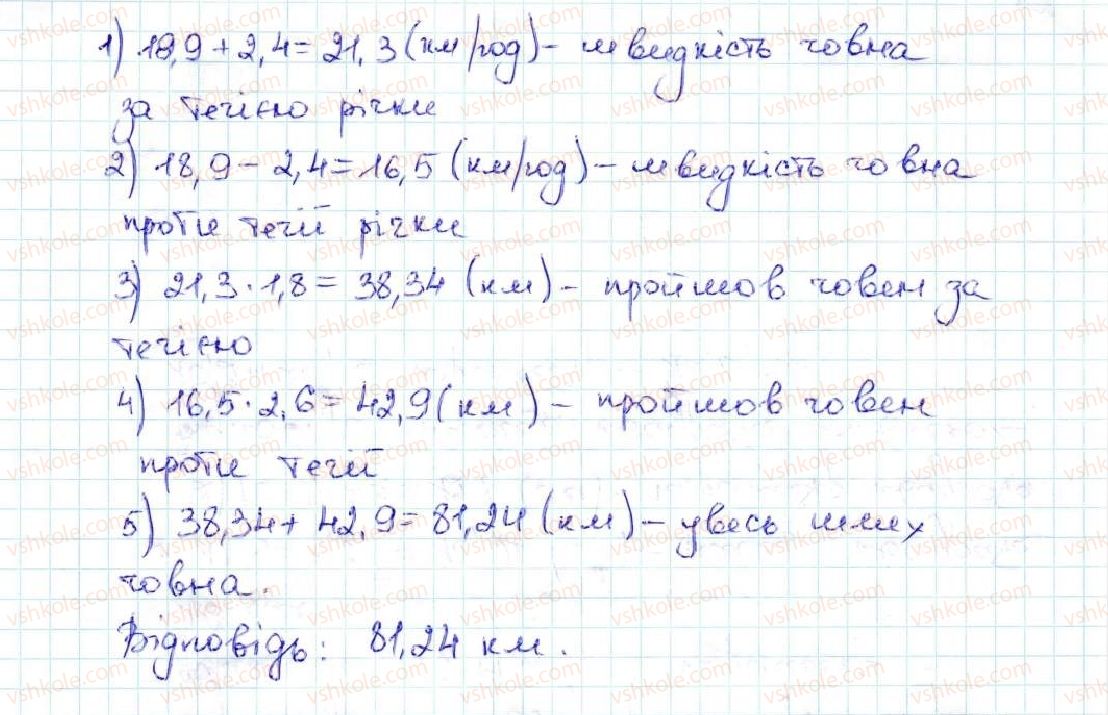 1) 18,9 + 2,4 = 21,3 (км/год) – швидкість човна
за течією річки
2) 18,9 – 2,4 = 16,5 (км/год) – швидкість човна
проти течії річки
3) 21,3 · 1,8 = 38,34 (км) – пройшов човен за
течією
4) 16,5 · 2,6 = 42,9 (км) – пройшов човен
проти течії
5) 38,34 + 42,9 = 81,24 (км) – увесь шлях
човна.
Відповідь: 81,24 км.
vshkole.com